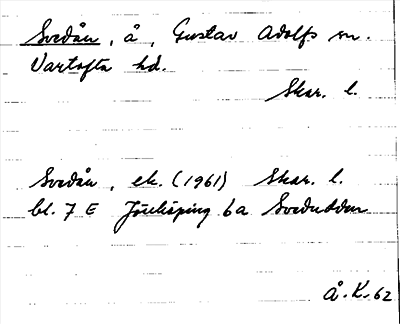 Svedån, å, Gustav Adolfs sn.
Vartofta hd.
Skar. l.
Svedån, ek. (1961) Skar. l.
bl. 7 E Jönköping 6a Svedudden
Å.K.62